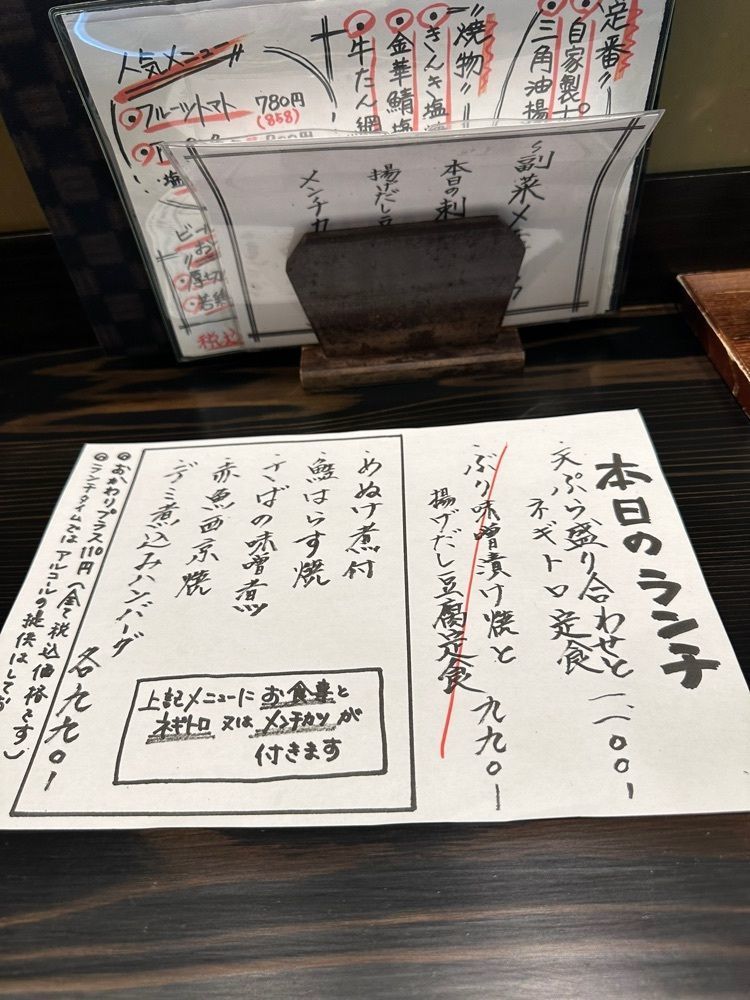 本日のランチ
天ぷら盛り合わせと
ネギトロ定食
一一〇〇ー
ぶり味噌漬け焼と
揚げだし豆腐定食
九九〇ー
めぬけ煮付
鮭はらす焼
さばの味噌煮
赤魚西京焼
デミ煮込みハンバーグ
各九九〇ー
上記メニューにお食事と
ネギトロ又はメンチカツが
付きます
おかわりプラス110円(全て税込価格です)
ランチタイムではアルコールの提供はしてお
副菜メ
本日の刺
揚げだし豆
メンチカ
定番
自家製
三角油揚
焼物
きんき塩
金華鯖塩
牛たん網
人気メニュー
フルーツトマト 780円
(858)
塩
ビール
お
厚切
若鶏
税込